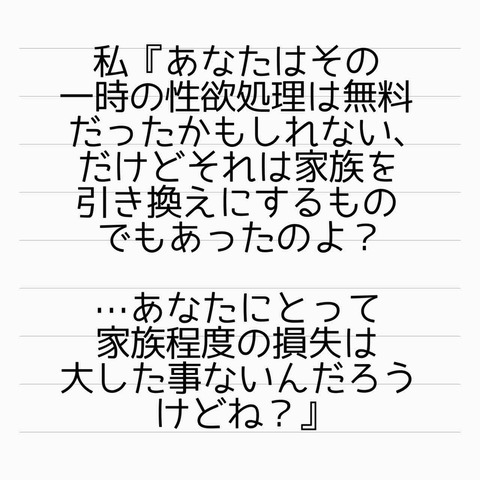 私『あなたはその
一時の性欲処理は無料
だったかもしれない、
だけどそれは家族を
引き換えにするもの
でもあったのよ？
…あなたにとって
家族程度の損失は
大した事ないんだろう
けどね？』